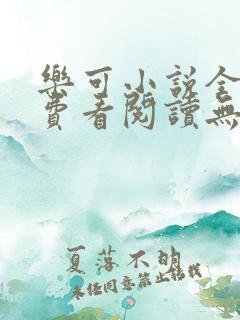 樂可小說全
費看閱讀無
夏落不明
未经同意禁止转载